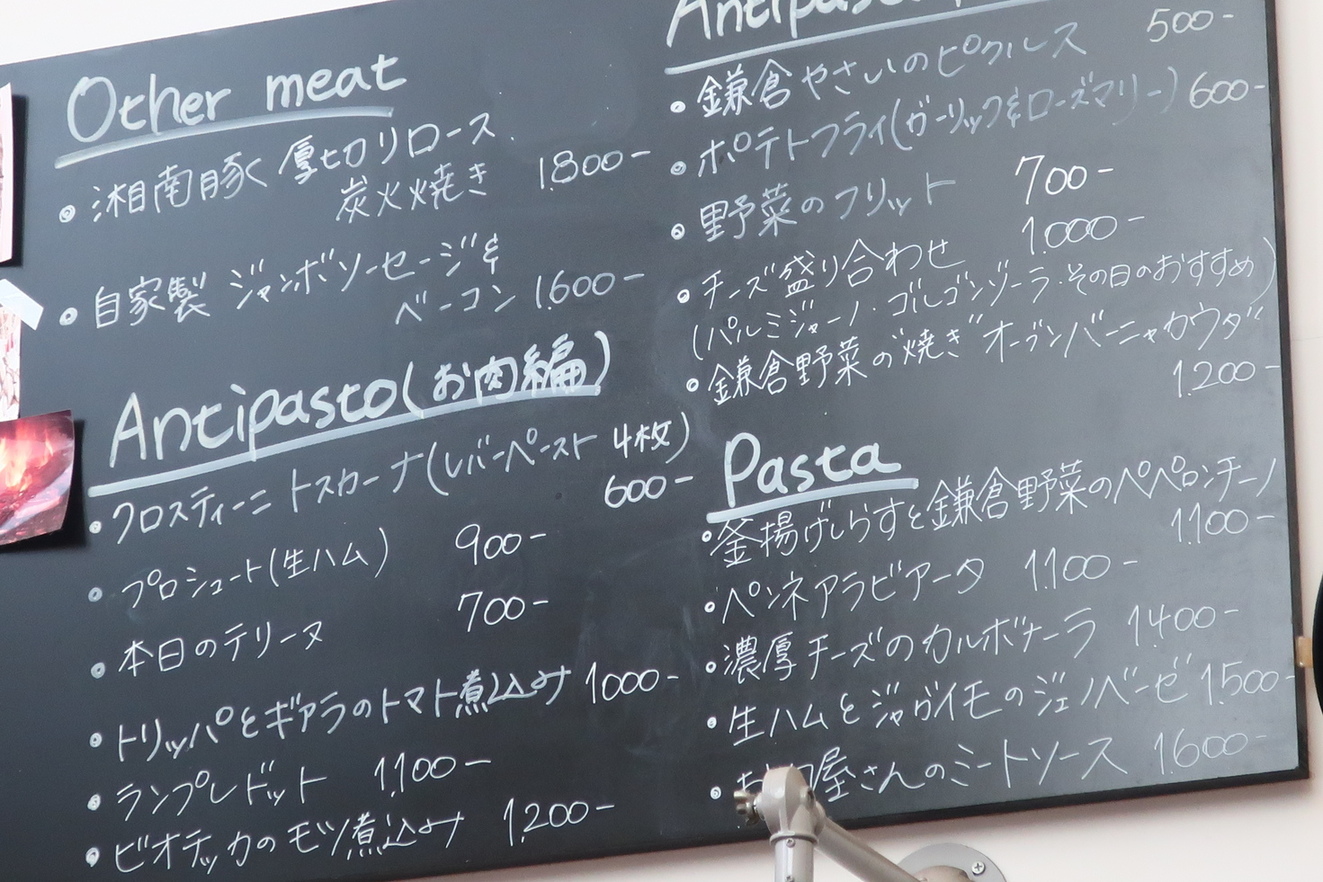 Other meat
湘南豚く厚切りロース
炭火焼き 1.800-
自家製 ジャンボソーセージ&
ベーコン 1.600-
Antipasto(お肉編)
クロスティーニ トスカーナ(レバーペースト 4枚)
600-
プロシュート(生ハム) 900-
本日のテリーヌ 700-
トリッパとギアラのトマト煮込み 1000-
ランプレドット 1.100-
ビオデッカのモツ煮込み 1.200-
鎌倉やさいのピクルス 500-
ポテトフライ(ガーリック&ローズマリー) 600-
野菜のフリット 700-
チーズ盛り合わせ 1.000-
(パルミジャーノ・ゴルゴンゾーラ・その日のおすすめ)
鎌倉野菜の"焼き"オーブンバーニャカウダ"
1.200-
Pasta
釜揚げしらすと鎌倉野菜のペペロンチーノ
1.100-
ペンネアラビアータ 1.100-
濃厚チーズのカルボナーラ 1.400-
生ハムとジャガイモのジェノベーゼ 1.500-
屋さんのミートソース 1.600-